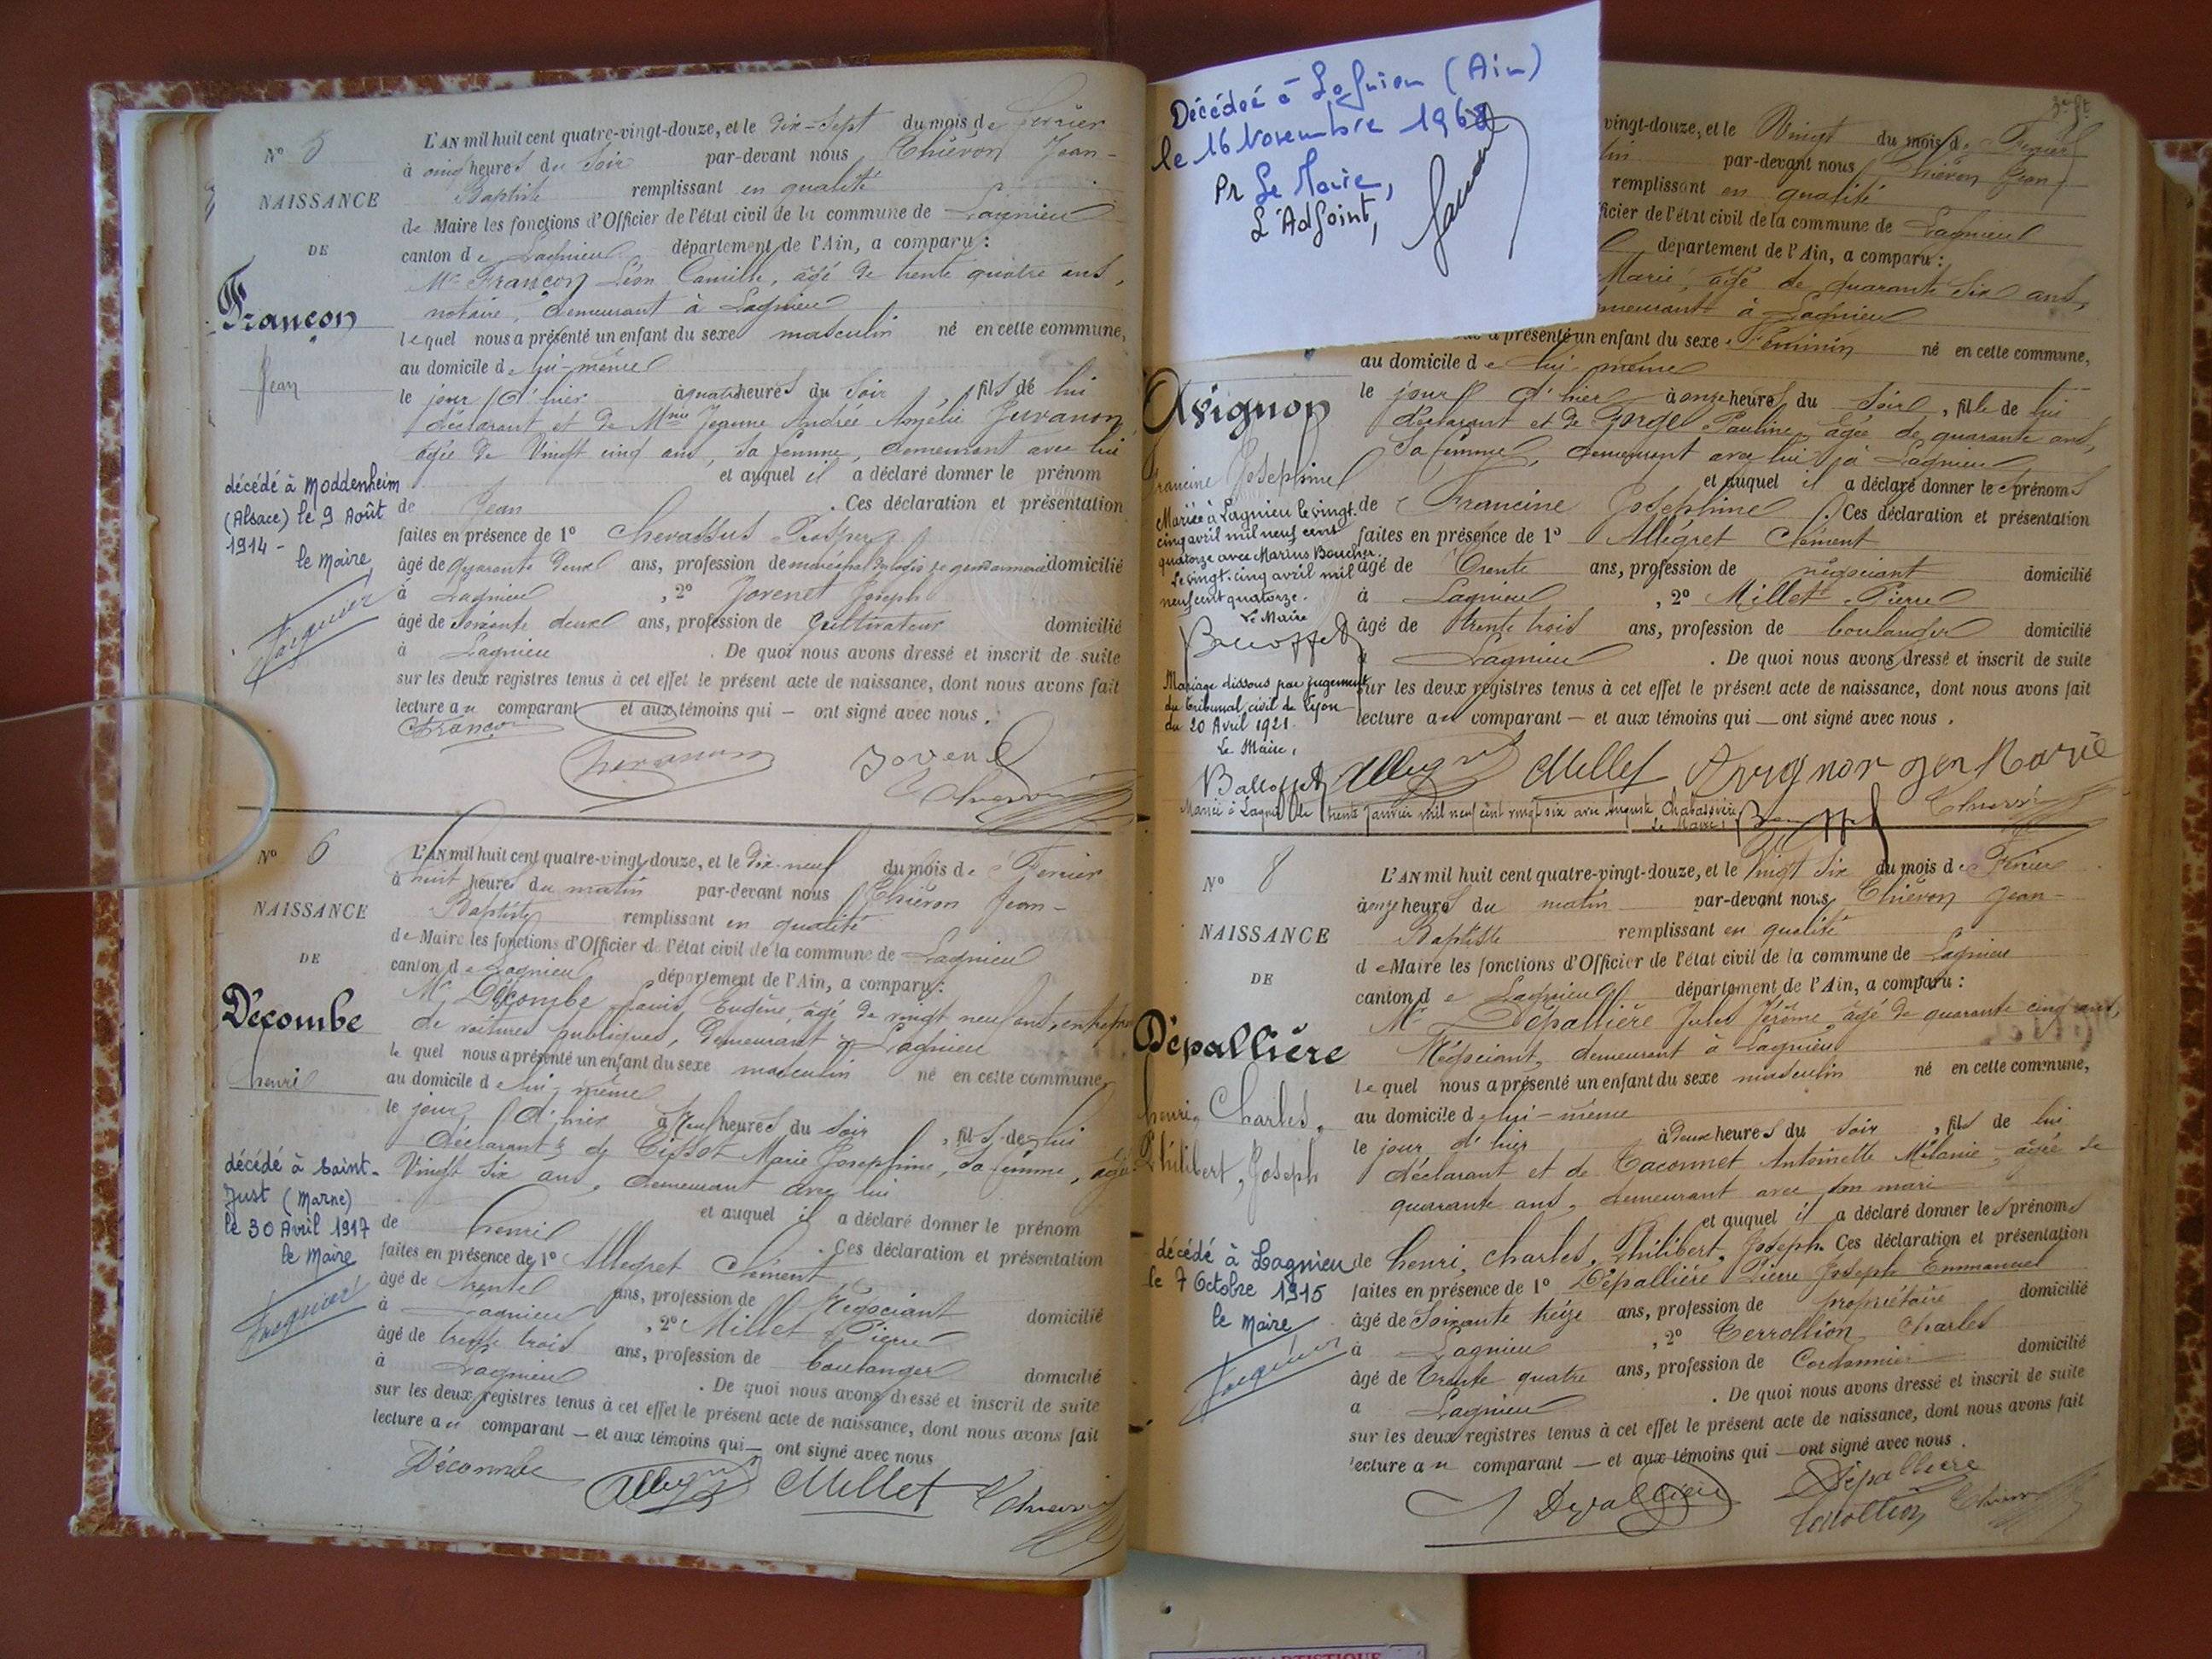 N° 5
NAISSANCE
DE
Françon
Jean
décédé à Moddenheim
(Alsace) le 9 Août
1914 -
le Maire,
Jacquier
L'AN mil huit cent quatre-vingt-douze, et le Dix-Sept du mois de Février
à cinq heures du Soir par-devant nous Thiévon Jean-
Baptiste remplissant en qualité
de Maire les fonctions d'Officier de l'état civil de la commune de Lagnieu
canton de Lagnieu département de l'Ain, a comparu :
Mr Françon Léon Camille, âgé de trente quatre ans,
notaire, demeurant à Lagnieu
lequel nous a présenté un enfant du sexe masculin né en cette commune,
au domicile de lui-même
le jour d'hier à quatre heures du Soir, fils de lui
déclarant et de Mme Jeanne André Amélie Juvanon
âgée de Vingt cinq ans, sa femme, demeurant avec lui
et auquel il a déclaré donner le prénom
de Jean . Ces déclaration et présentation
faites en présence de 1° Chevassus Prosper
âgé de quarante deux ans, profession de maréchal des logis de gendarmerie domicilié
à Lagnieu, 2° Jovenet Joseph
âgé de soixante deux ans, profession de Cultivateur domicilié
à Lagnieu . De quoi nous avons dressé et inscrit de suite
sur les deux registres tenus à cet effet le présent acte de naissance, dont nous avons fait
lecture au comparant et aux témoins qui — ont signé avec nous.
Françon
N° 6
NAISSANCE
DE
Décombe
henri
décédé à Saint-
Just (Marne)
le 30 Avril 1917
le Maire
Jacquier
L'AN mil huit cent quatre-vingt-douze, et le Dix-neuf du mois de Février
à huit heures du matin par-devant nous Thiévon Jean-
Baptiste remplissant en qualité
de Maire les fonctions d'Officier de l'état civil de la commune de Lagnieu
canton de Lagnieu département de l'Ain, a comparu :
Mr Décombe Louis Eugène, âgé de vingt neuf ans, entrepr
de voitures publiques, demeurant à Lagnieu
lequel nous a présenté un enfant du sexe masculin né en cette commune,
au domicile de lui-même
le jour d'hier à neuf heures du Soir, fils de lui
déclarant & de Tissot Marie Josephine, sa femme, âgée
Vingt six ans, demeurant avec lui
et auquel il a déclaré donner le prénom
de henri . Ces déclaration et présentation
faites en présence de 1° Allegret Clément
âgé de trente ans, profession de Négociant domicilié
à Lagnieu, 2° Millet Pierre
âgé de trente trois ans, profession de boulanger domicilié
à Lagnieu . De quoi nous avons dressé et inscrit de suite
sur les deux registres tenus à cet effet le présent acte de naissance, dont nous avons fait
lecture au comparant — et aux témoins qui — ont signé avec nous
Décombe Allegret Millet Thiévon
Décédée à Lagnieu (Ain)
le 16 Novembre 1968
Pr Le Maire,
L'Adjoint,
vingt-douze, et le Vingt du mois de Février
par-devant nous Thiévon Jean-
remplissant en qualité
ficier de l'état civil de la commune de Lagnieu
département de l'Ain, a comparu :
Marie, âgé de quarante six ans,
demeurant à Lagnieu
a présenté un enfant du sexe Féminin né en cette commune,
au domicile de lui même
Avignon
Francine Josephine
Mariée à Lagnieu le vingt-
cinq avril mil neuf cent
quatorze avec Marius Boucher.
Le vingt-cinq avril mil
neuf cent quatorze.
Le Maire
Balloffet
Mariage dissous par jugement
du tribunal civil de Lyon
du 20 Avril 1921.
Le Maire,
Balloffet
le jour d'hier à onze heures du Soir, fille de lui
déclarant et de Pauline, âgée de quarante ans,
Sa femme, demeurant avec lui à Lagnieu
et auquel il a déclaré donner les prénoms
de Francine Josephine . Ces déclaration et présentation
faites en présence de 1° Allégret Clément
âgé de Trente ans, profession de négociant domicilié
à Lagnieu, 2° Millet Pierre
âgé de trente trois ans, profession de boulanger domicilié
à Lagnieu . De quoi nous avons dressé et inscrit de suite
sur les deux registres tenus à cet effet le présent acte de naissance, dont nous avons fait
lecture au comparant — et aux témoins qui — ont signé avec nous.
Allegret Millet Avignon Jean Marie
Mariée à Lagnieu le trente Janvier mil neuf cent vingt six avec Auguste
le Maire,
N° 8
NAISSANCE
DE
Dépallière
henri, Charles,
Philibert, Joseph
décédé à Lagnieu
le 7 Octobre 1915
le Maire
Jacquier
L'AN mil huit cent quatre-vingt-douze, et le Vingt Six du mois de Février
à onze heures du matin par-devant nous Thiévon Jean-
Baptiste remplissant en qualité
de Maire les fonctions d'Officier de l'état civil de la commune de Lagnieu
canton de Lagnieu département de l'Ain, a comparu :
Mr Dépallière Jules Jérôme âgé de quarante cinq ans,
Négociant, demeurant à Lagnieu
lequel nous a présenté un enfant du sexe masculin né en cette commune,
au domicile de lui-même
le jour d'hier à deux heures du Soir, fils de lui
déclarant et de Taconnet Antoinette Mélanie, âgée de
quarante ans, demeurant avec son mari
et auquel il a déclaré donner les prénoms
de henri, Charles, Philibert, Joseph. Ces déclaration et présentation
faites en présence de 1° Dépallière Pierre Joseph Emmanuel
âgé de Soixante treize ans, profession de propriétaire domicilié
à Lagnieu, 2° Terrollion Charles
âgé de Trente quatre ans, profession de Cordonnier domicilié
a Lagnieu . De quoi nous avons dressé et inscrit de suite
sur les deux registres tenus à cet effet le présent acte de naissance, dont nous avons fait
lecture au comparant — et aux témoins qui — ont signé avec nous.
Dépallière
Dépallière
Terrollion Thiévon